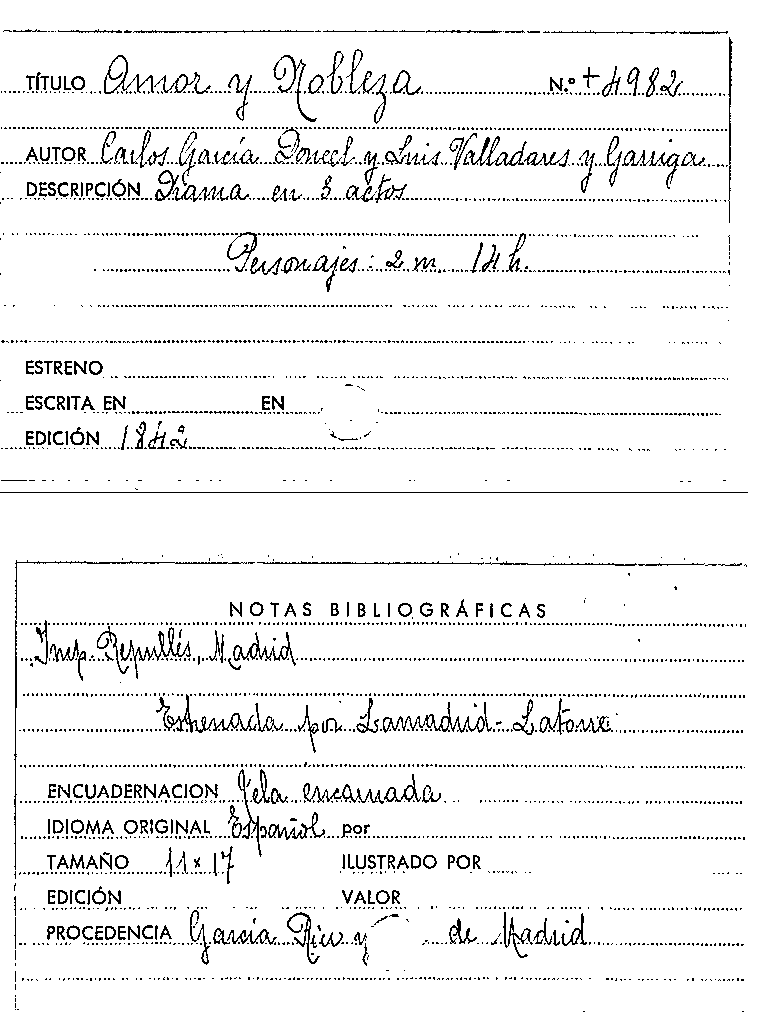 TÍTULO Amor y Nobleza N.º + 4982
AUTOR Carlos García Doncel y Luis Valladares y Garriga
DESCRIPCIÓN Drama en 3 actos
Personajes: 2 m. 14 h.
ESTRENO
ESCRITA EN EN
EDICIÓN 1842
NOTAS BIBLIOGRÁFICAS
Imp. Repullés, Madrid
Estrenada por Lamadrid - Latorre
ENCUADERNACION Tela encarnada
IDIOMA ORIGINAL Español por
TAMAÑO 11 x 17 ILUSTRADO POR
EDICIÓN VALOR
PROCEDENCIA García Rico y de Madrid